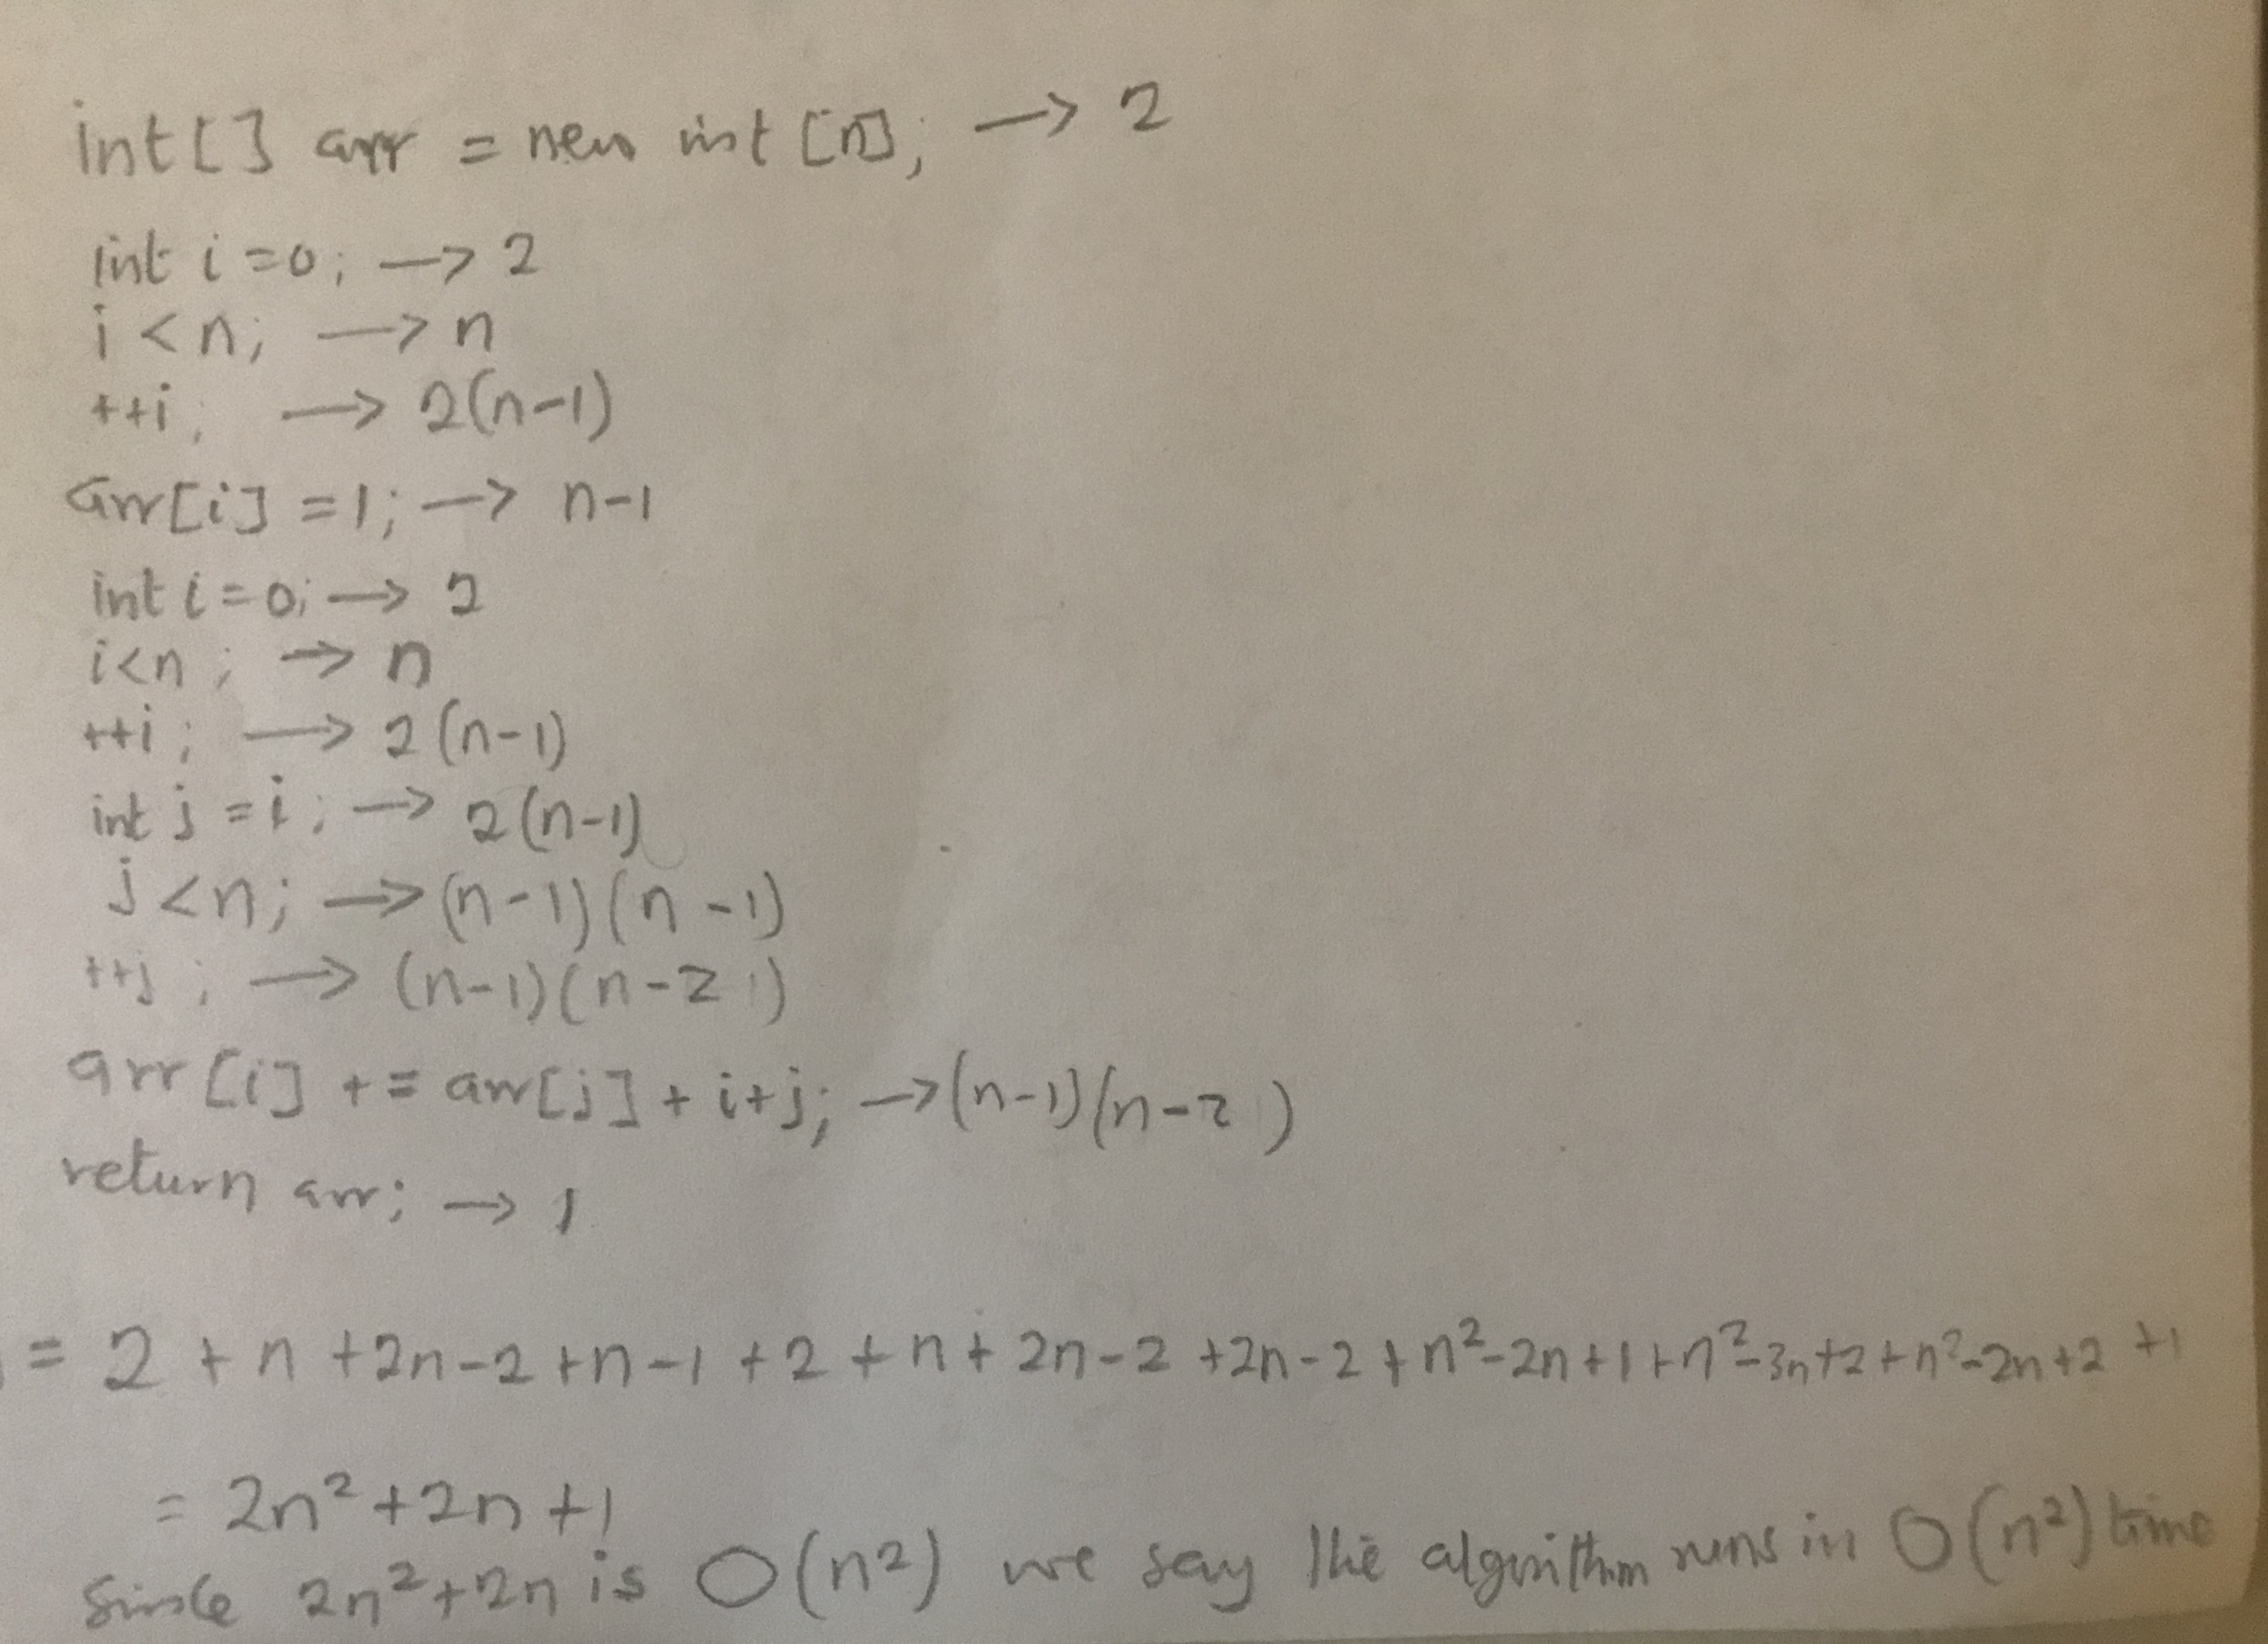 int[] arr = new int[n]; → 2
int i=0; → 2
i<n; → n
++i; → 2(n-1)
arr[i] =1; → n-1
int i=0; → 2
i<n; → n
++i; → 2(n-1)
int j=i; → 2(n-1)
j<n; → (n-1)(n-1)
++j; → (n-1)(n-2)
arr[i] += arr[j] + i+j; → (n-1)(n-2)
return arr; → 1
= 2 + n +2n-2 +n-1 +2 +n+ 2n-2 +2n-2 + n²-2n+1+n²-3n+2+n²-2n+2 +1
= 2n²+2n+1
Since 2n²+2n is O(n²) we say the algorithm runs in O(n²) time